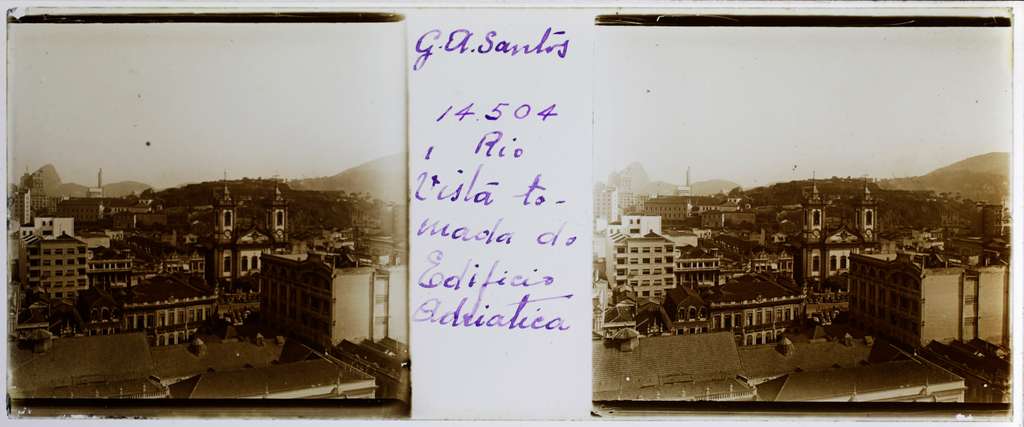 G.A. Santos
14.504
Rio
Vista to-
mada do
Edificio
Adriatica